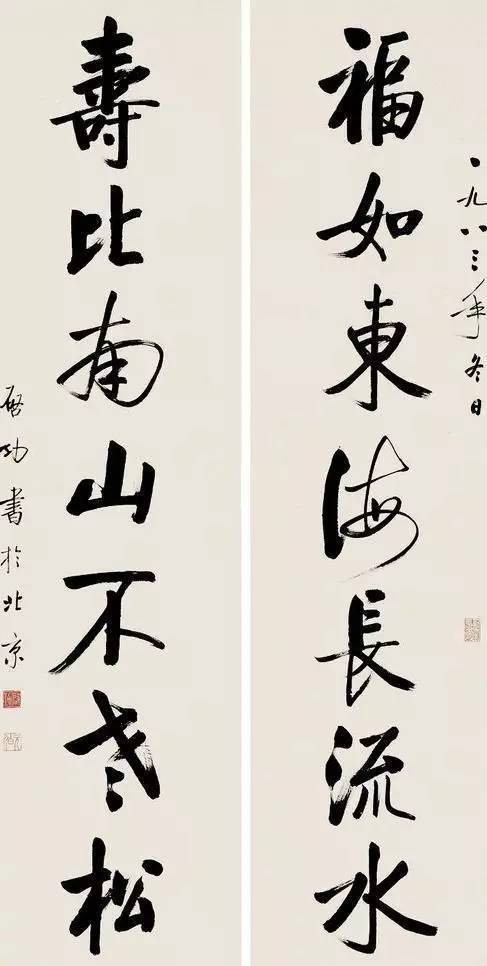 一九八三年冬日
福如東海長流水
壽比南山不老松
启功書於北京